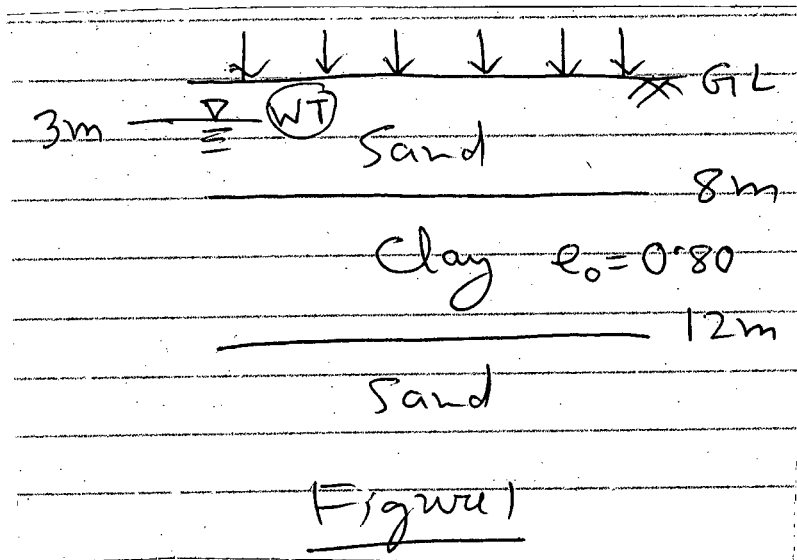 GL
3m WT
Sand
8m
Clay e₀=0.80
12m
Sand
Figure 1